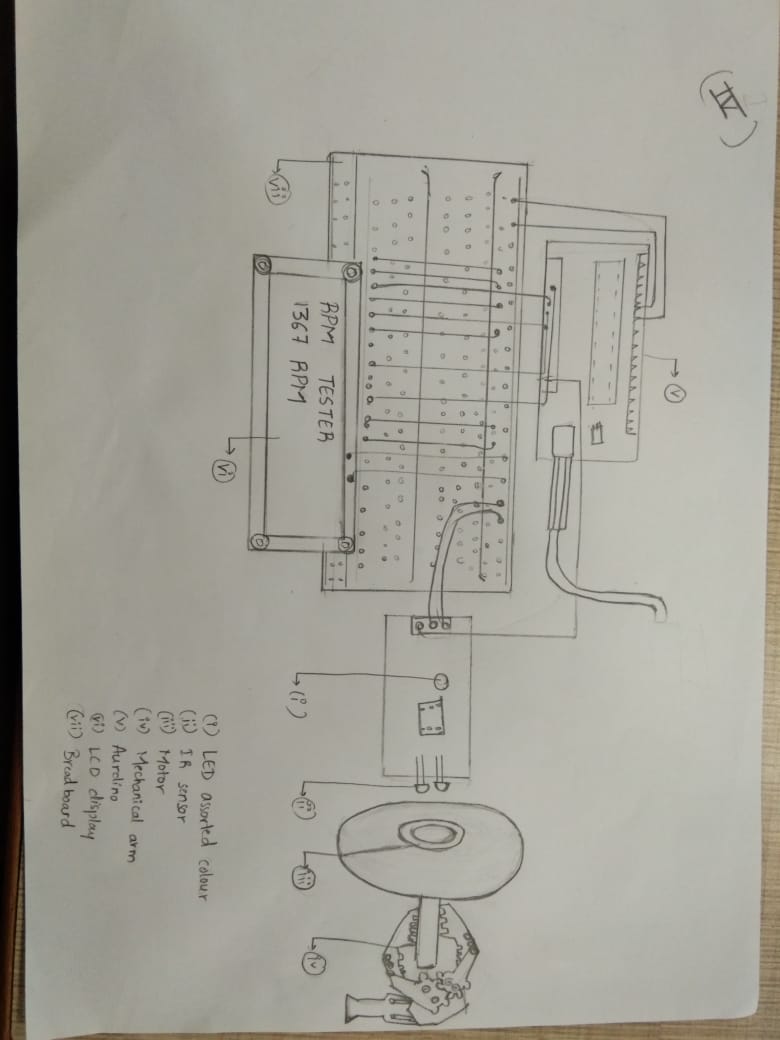 (IV)
(vii)
(v)
RPM TESTER
1367 RPM
(vi)
(i)
(ii)
(iii)
(iv)
(i) LED assorted colour
(ii) IR sensor
(iii) Motor
(iv) Mechanical arm
(v) Aurdino
(vi) LCD display
(vii) Breadboard